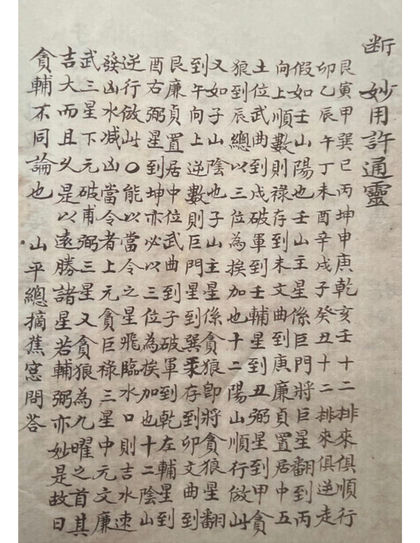 断　妙用許通靈
艮寅甲巽丁巳丙坤申庚乾亥壬十二排來俱順行
卯乙辰午丁未酉辛戌子癸丑十二排來俱逆走
假如壬山陽也壬山主星係巨門將巨星翻丙
向上順數則祿存到未文星到庚廉貞置居中五
土位上武曲到戌破軍到壬輔星到丑弼星到甲貪
狼到辰總以三位為挨加也十二陽山順行倣此
又如子山陰也子山主星係貪狼卽將貪狼星翻
到午向上逆數則巨門星到巽祿存到卯文曲星到
艮廉貞置居中位武曲到子破軍到乾左輔星到
酉右弼星到坤亦必以三位為挨加也十二陰山
逆行倣此○能以當令之星飛臨水口則吉水速
發凶水減凶當令者上元貪巨祿三星中元文廉
武三星下元破甫弼三星又貪狼為九曜之首其
吉大而且久是以遠勝諸星若輔弼亦妙是故曰
貪輔不同論也　山平總摘蕉窓問答